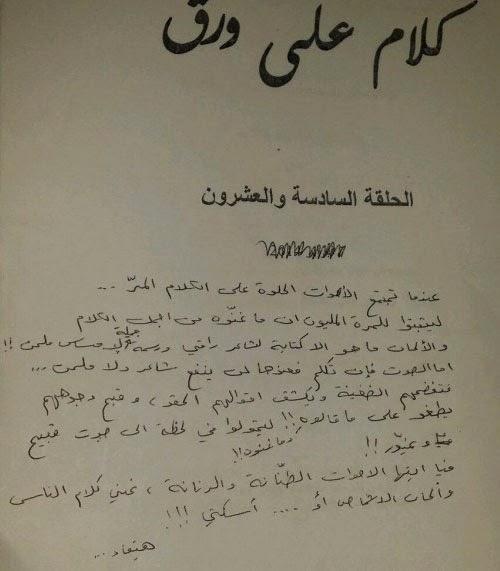 كلام على ورق
الحلقة السادسة والعشرون
عندما تجتمع الأصوات الحلوة على الكلام المرّ ...
ليثبتوا للمرة المليون ان ما غنّوه من اجمل الكلام
والألحان ما هو الا كتابة لشاعر راقي ورسمة جملة ملحن !!
اما الصوت فإن تكلم لن ينفع شاعر ولا ملحن ...
فتفضحهم الضغينة وتكشف اقوالهم الحقد، وقبح وجوههم
يطغو على ما قالوه !! ليتحولوا في لحظة الى صوت قبيح
وما غنوه !!
!!
فيا ايتها الأصوات الطنّانة والرنانة، غني كلام الناس
وألحان الاشخاص أو .... أسكتي !!!
هيفاء ...